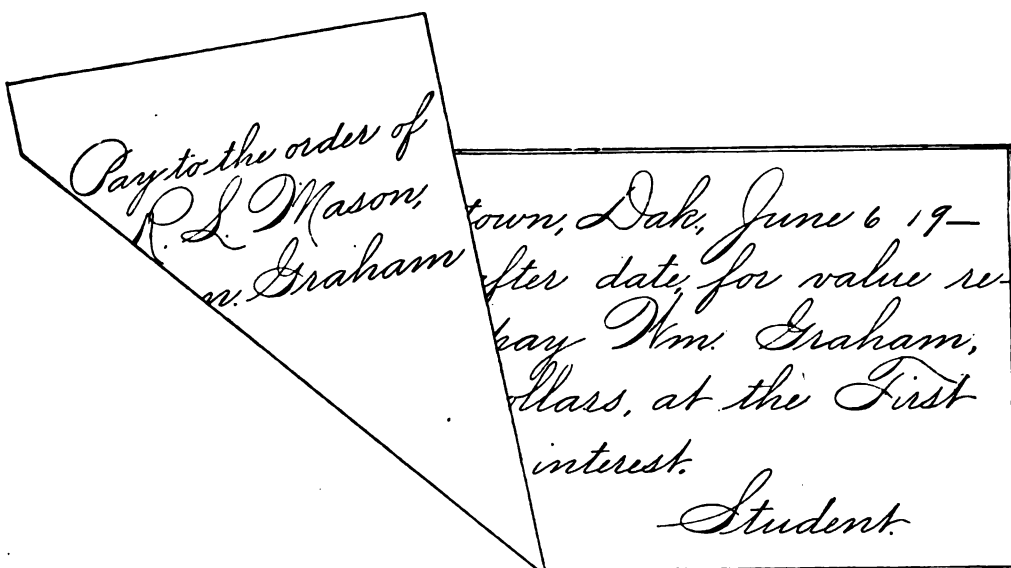 Pay to the order of
R. L. Mason,
m. Graham
town, Dak., June 6 19—
after date, for value re-
pay Wm. Graham,
ollars, at the First
interest.
Student.